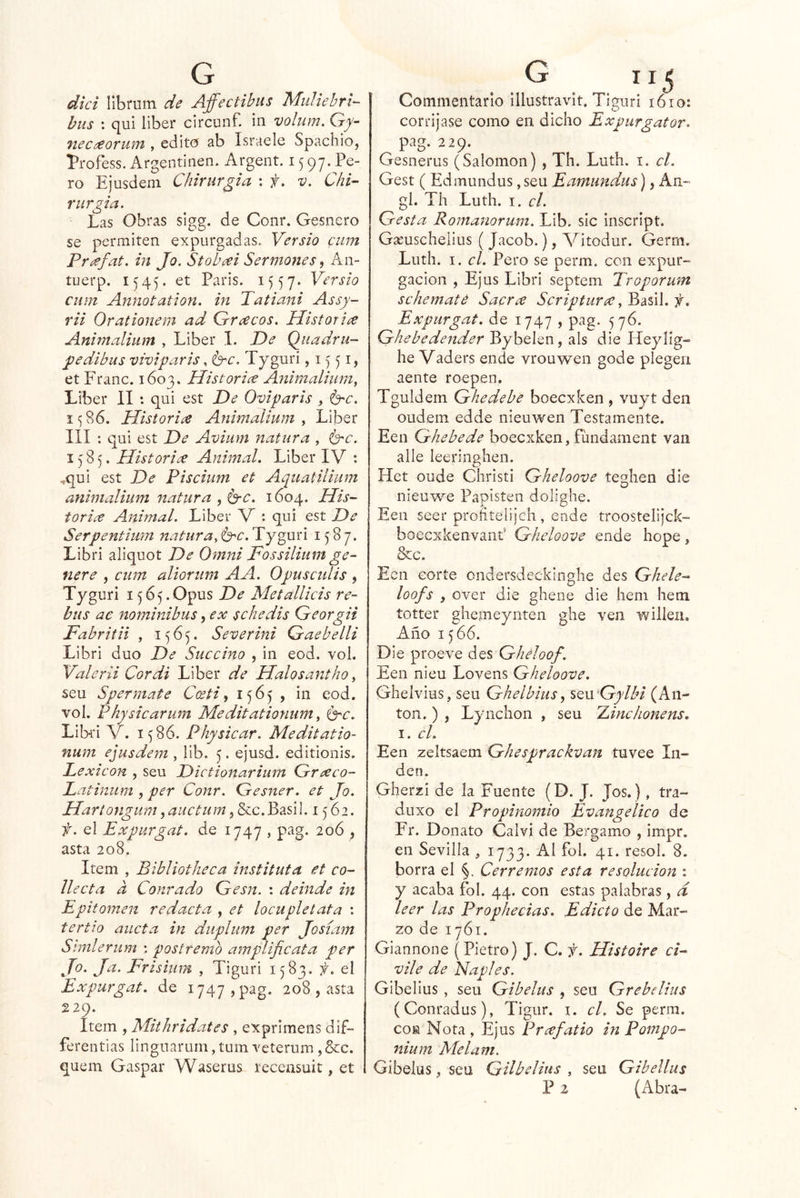 G
dici librum de Affectibus Muliebri-
bus : qui liber circunf. in volum. Gy-
necæorum , edito ab Israele Spachio,
Profess. Argentinen. Argent. 1597. Pe-
ro Ejusdem Chirurgia : ꝟ. v. Chi-
rurgia.
Las Obras sigg. de Conr. Gesnero
se permiten expurgadas. Versio cum
Præfat. in Jo. Stobæi Sermones, An-
tuerp. 1545. et Paris. 1557. Versio
cum Annotation. in Tatiani Assy-
rii Orationem ad Græcos. Historiæ
Animalium , Liber I. De Quadru-
pedibus viviparis, &c. Tyguri , 1551,
et Franc. 1603. Historiæ Animalium,
Liber II : qui est De Oviparis , &c.
1586. Historiæ Animalium , Liber
III : qui est De Avium natura , &c.
1585. Historiæ Animal. Liber IV :
qui est De Piscium et Aquatilium
animalium natura , &c. 1604. His-
toriæ Animal. Liber V : qui est De
Serpentium natura, &c. Tyguri 1587.
Libri aliquot De Omni Fossilium ge-
nere , cum aliorum AA. Opusculis ,
Tyguri 1565. Opus De Metallicis re-
bus ac nominibus, ex schedis Georgii
Fabritii , 1565. Severini Gaebelli
Libri duo De Succino , in eod. vol.
Valerii Cordi Liber de Halosantho,
seu Spermate Cœti, 1565 , in eod.
vol. Physicarum Meditationum, &c.
Libri V. 1586. Physicar. Meditatio-
num ejusdem , lib. 5. ejusd. editionis.
Lexicon , seu Dictionarium Græco-
Latinum , per Conr. Gesner. et Jo.
Hartongum, auctum, &c. Basil. 1562.
ꝟ. el Expurgat. de 1747 , pag. 206 ,
asta 208.
Item , Bibliotheca instituta et co-
llecta à Conrado Gesn. : deinde in
Epitomen redacta , et locupletata :
tertio aucta in duplum per Josiam
Simlerum : postremò amplificata per
Jo. Ja. Frisium , Tiguri 1583. ꝟ. el
Expurgat. de 1747, pag. 208, asta
229.
Item , Mithridates , exprimens dif-
ferentias linguarum, tum veterum, &c.
quem Gaspar Waserus recensuit , et
G 115
Commentario illustravit. Tiguri 1610:
corrijase como en dicho Expurgator.
pag. 229.
Gesnerus (Salomon) , Th. Luth. 1. cl.
Gest ( Edmundus , seu Eamundus ) , An-
gl. Th Luth. 1. cl.
Gesta Romanorum. Lib. sic inscript.
Gæuschelius ( Jacob. ) , Vitodur. Germ.
Luth. 1. cl. Pero se perm. con expur-
gacion , Ejus Libri septem Troporum
schemate Sacræ Scripturæ, Basil. ꝟ.
Expurgat. de 1747 , pag. 576.
Ghebedender Bybelen , als die Heylig-
he Vaders ende vrouwen gode plegen
aente roepen.
Tguldem Ghedebe boecxken , vuyt den
oudem edde nieuwen Testamente.
Een Ghebede boecxken, fundament van
alle leeringhen.
Het oude Christi Gheloove teghen die
nieuwe Papisten dolighe.
Een seer profitelijch , ende troostelijck-
boecxkenvant Gheloove ende hope ,
&c.
Een corte ondersdeckinghe des Ghele-
loofs , over die ghene die hem hem
totter ghemeynten ghe ven willen.
Año 1566.
Die proeve des Gheloof.
Een nieu Lovens Gheloove.
Ghelvius, seu Ghelbius, seu Gylbi (An-
ton. ) , Lynchon , seu Zinchonens.
1. cl.
Een zeltsaem Ghesprackvan tuvee In-
den.
Gherzi de la Fuente (D. J. Jos.) , tra-
duxo el Propinomio Evangelico de
Fr. Donato Calvi de Bergamo , impr.
en Sevilla , 1733. Al fol. 41. resol. 8.
borra el §. Cerremos esta resolucion :
y acaba fol. 44. con estas palabras , á
leer las Prophecias. Edicto de Mar-
zo de 1761.
Giannone ( Pietro) J. C. ꝟ. Histoire ci-
vile de Naples.
Gibelius , seu Gibelus , seu Grebelius
(Conradus) , Tigur. 1. cl. Se perm.
con Nota , Ejus Præfatio in Pompo-
nium Melam.
Gibelus, seu Gilbelius , seu Gibellus
P 2 (Abra-